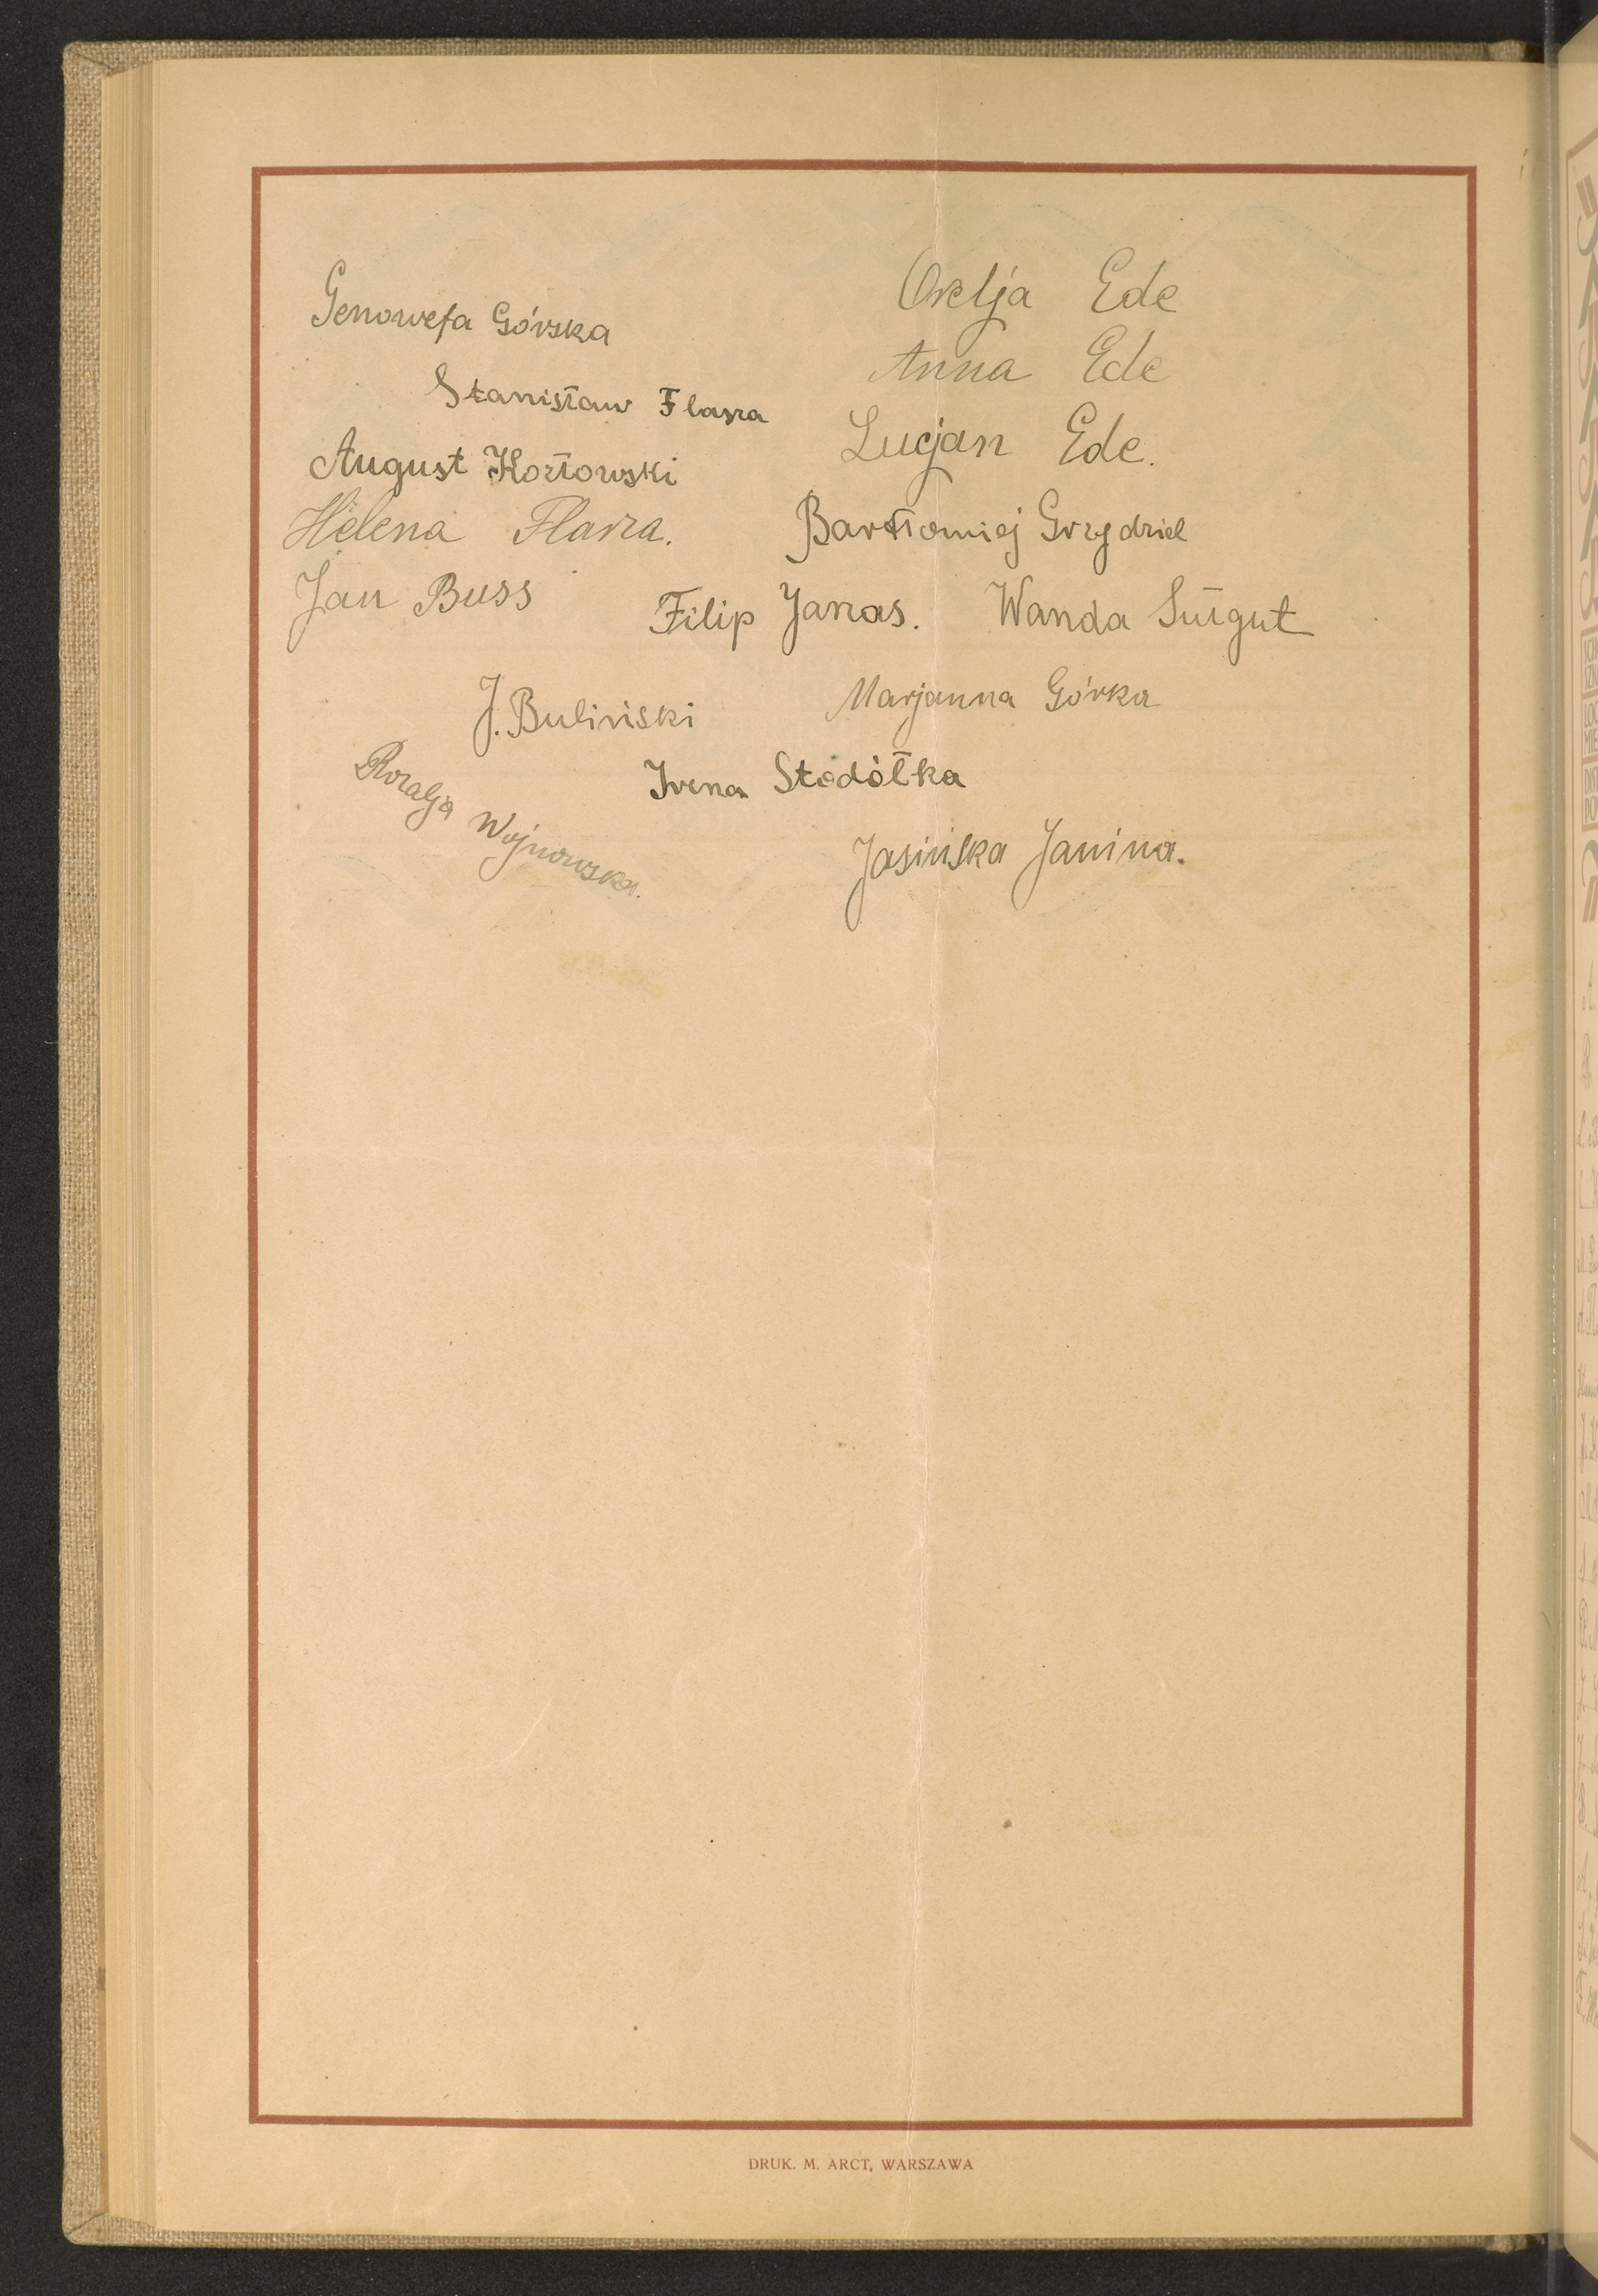 Genowefa Górska
Orelja Ede
Anna Ede
Stanisław Flasza
Lucjan Ede.
August Kozłowski
Helena Flasza.
Bartłomiej Grzydziel
Jan Buss
Filip Janas.
Wanda Surgut
J. Buliński
Marjanna Górka
Rozalja Wojnowska.
Irena Stodółka
Jasińska Janina.
DRUK. M. ARCT, WARSZAWA